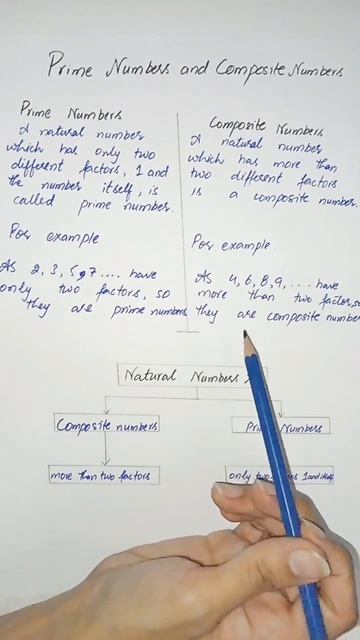 Prime Numbers and Composite Numbers
Prime Numbers
A natural number
which has only two
different factors, 1 and
the number itself, is
called prime number.
For example
As 2, 3, 5, 7 .... have
only two factors, so
they are prime numbers
Composite Numbers
A natural number
which has more than
two different factors
is a composite number.
For example
As 4, 6, 8, 9, .... have
more than two factor, so
they are composite number
Natural Numbers
Composite numbers
Numbers
more than two factors
only 1 and itself